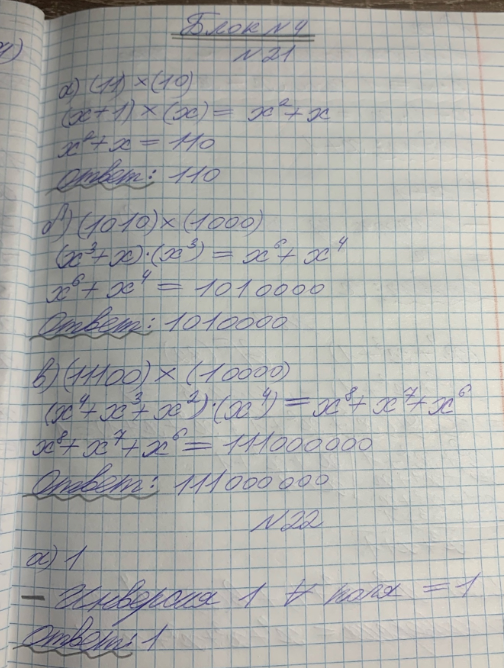 Блок N4
N21
а) (11) × (10)
(x+1) × (x) = x² + x
x² + x = 110
Ответ: 110
б) (1010) × (1000)
(x³+x)·(x³) = x⁶ + x⁴
x⁶ + x⁴ = 1010000
Ответ: 1010000
в) (11100) × (10000)
(x⁴+x³+x²)·(x⁴) = x⁸ + x⁷ + x⁶
x⁸ + x⁷ + x⁶ = 111000000
Ответ: 111000000
N22
а) 1
- Инверсия 1 ∀ поля = 1
Ответ: 1